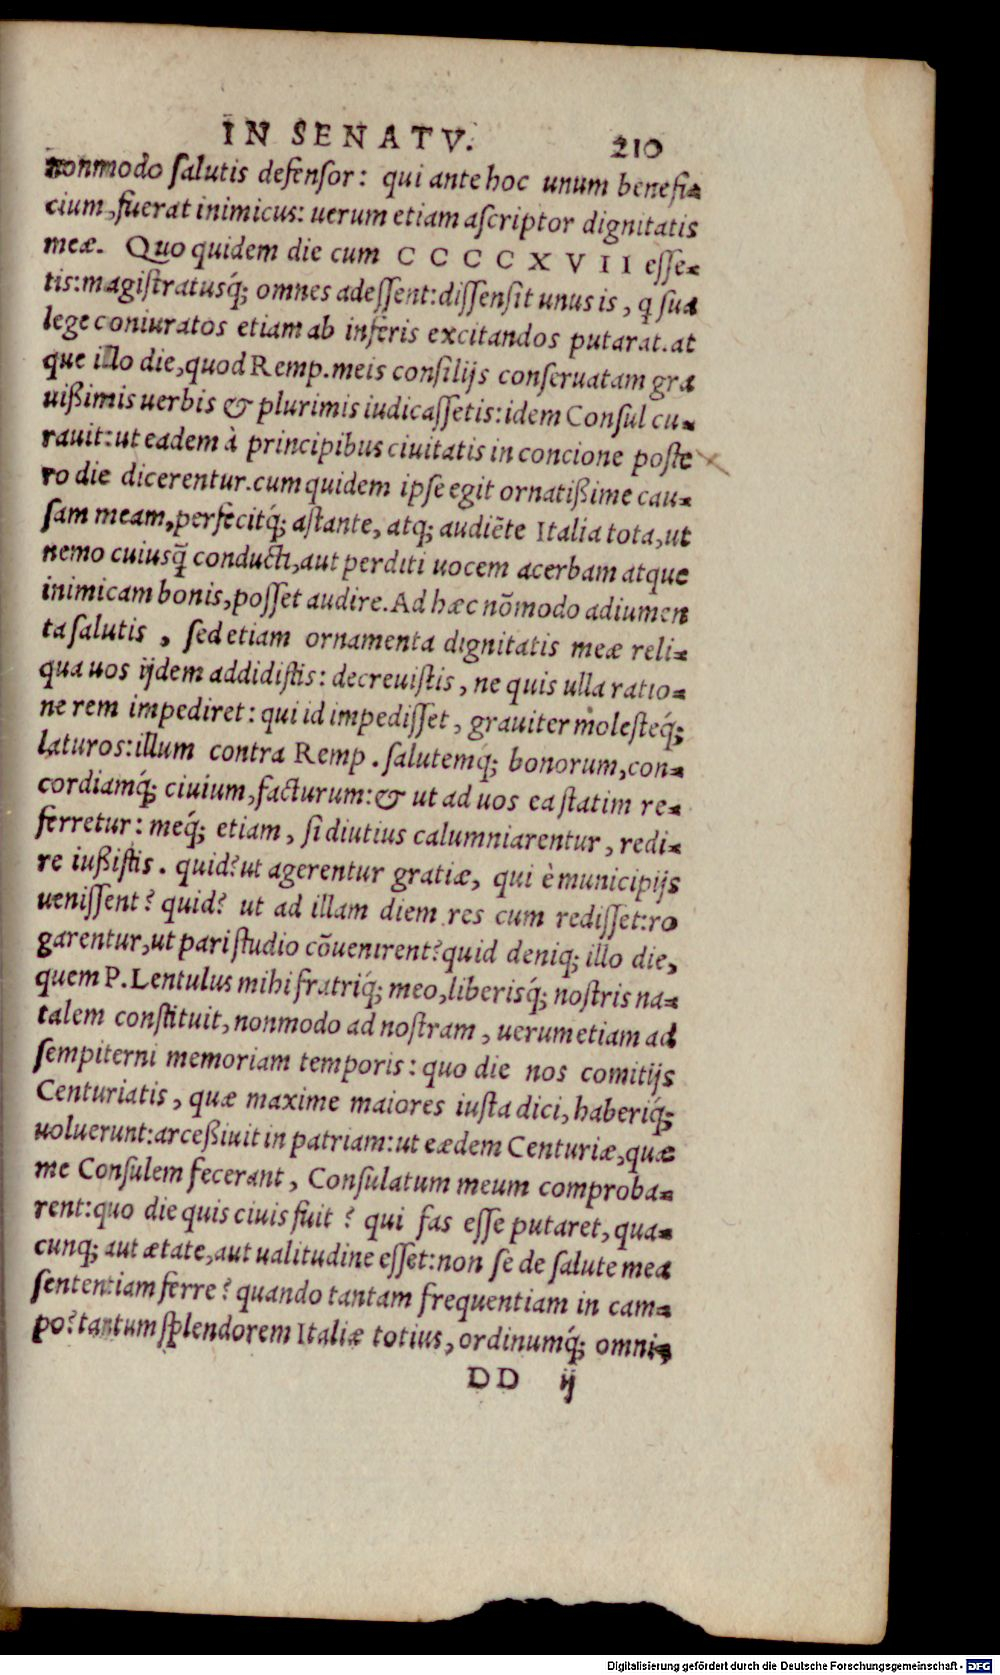 IN SENATV. 210
nonmodo salutis defensor: qui ante hoc unum benefi=
cium, fuerat inimicus: uerum etiam ascriptor dignitatis
meæ. Quo quidem die cum CCCCXVII esse=
tis: magistratusq́; omnes adessent: dissensit unus is, q̣ sua
lege coniuratos etiam ab inferis excitandos putarat. at
que illo die, quod Remp. meis consilijs conseruatam gra
uißimis uerbis & plurimis iudicassetis: idem Consul cu=
rauit: ut eadem à principibus ciuitatis in concione poste
ro die dicerentur. cum quidem ipse egit ornatißime cau=
sam meam, perfecitq́; astante, atq; audiẽte Italia tota, ut
nemo cuiusq̃ conducti, aut perditi uocem acerbam atque
inimicam bonis, posset audire. Ad hæc nõmodo adiumen
ta salutis, sed etiam ornamenta dignitatis meæ reli=
qua uos ijdem addidistis: decreuistis, ne quis ulla ratio=
ne rem impediret: qui id impedisset, grauiter molesteq́;
laturos: illum contra Remp. salutemq́; bonorum, con=
cordiamq́; ciuium, facturum: & ut ad uos ea statim re=
ferretur: meq́; etiam, si diutius calumniarentur, redi=
re iußistis. quid? ut agerentur gratiæ, qui è municipijs
uenissent? quid? ut ad illam diem res cum redisset: ro
garentur, ut pari studio cõuenirent? quid deniq; illo die,
quem P. Lentulus mihi fratriq́; meo, liberisq́; nostris na=
talem constituit, nonmodo ad nostram, uerum etiam ad
sempiterni memoriam temporis: quo die nos comitijs
Centuriatis, quæ maxime maiores iusta dici, haberiq́;
uoluerunt: arceßiuit in patriam: ut eædem Centuriæ, quæ
me Consulem fecerant, Consulatum meum comproba=
rent: quo die quis ciuis fuit? qui fas esse putaret, qua=
cunq; aut ætate, aut ualitudine esset: non se de salute mea
sententiam ferre? quando tantam frequentiam in cam=
po? tantum splendorem Italiæ totius, ordinumq́; omni=
DD ij
Digitalisierung gefördert durch die Deutsche Forschungsgemeinschaft - DFG